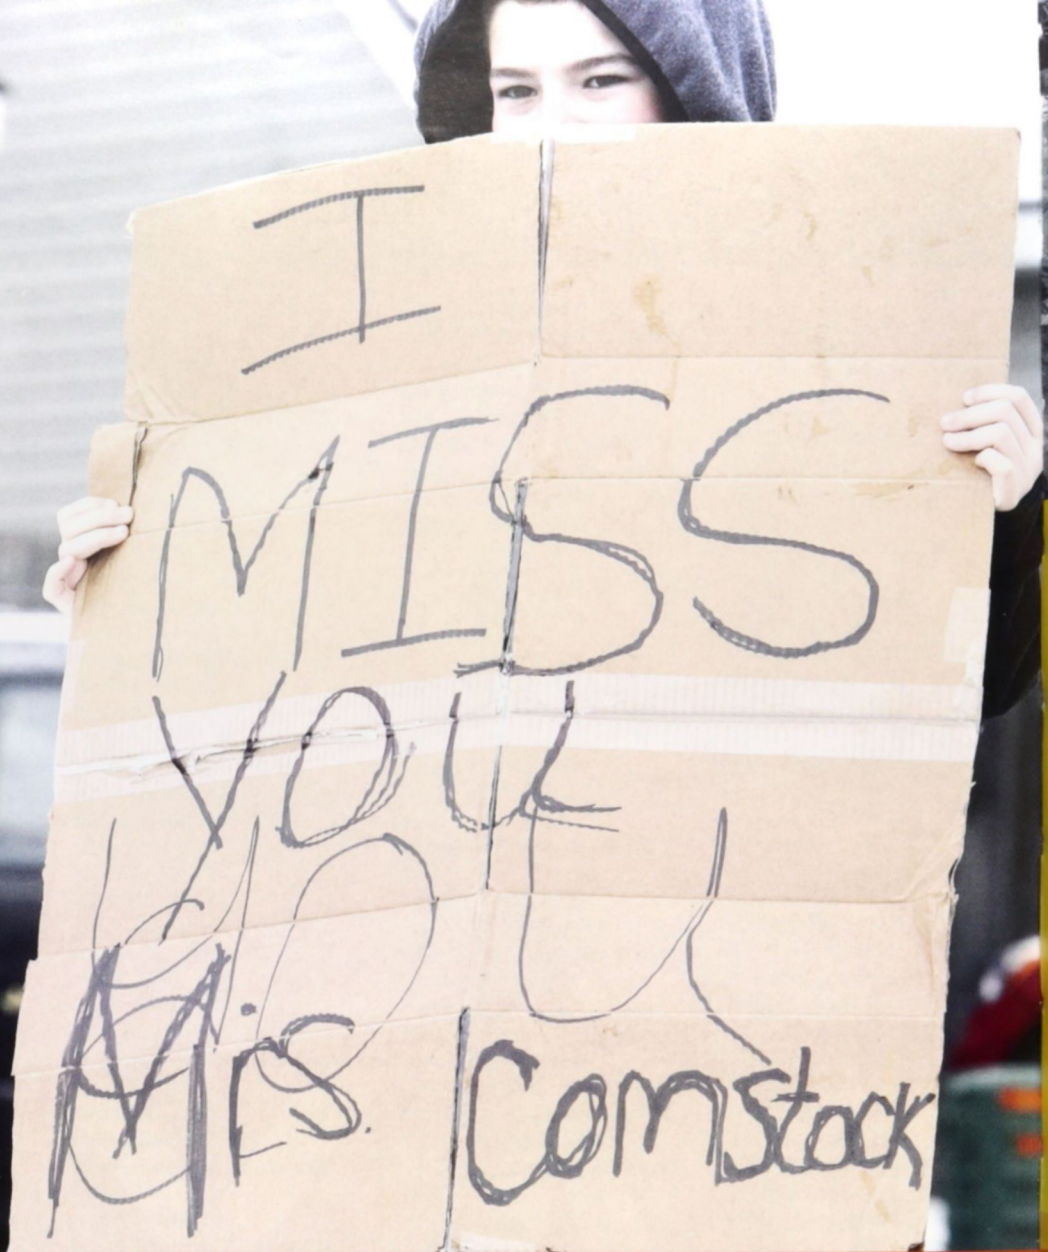 I
MISS
YOU
YOU
Mrs. Comstock